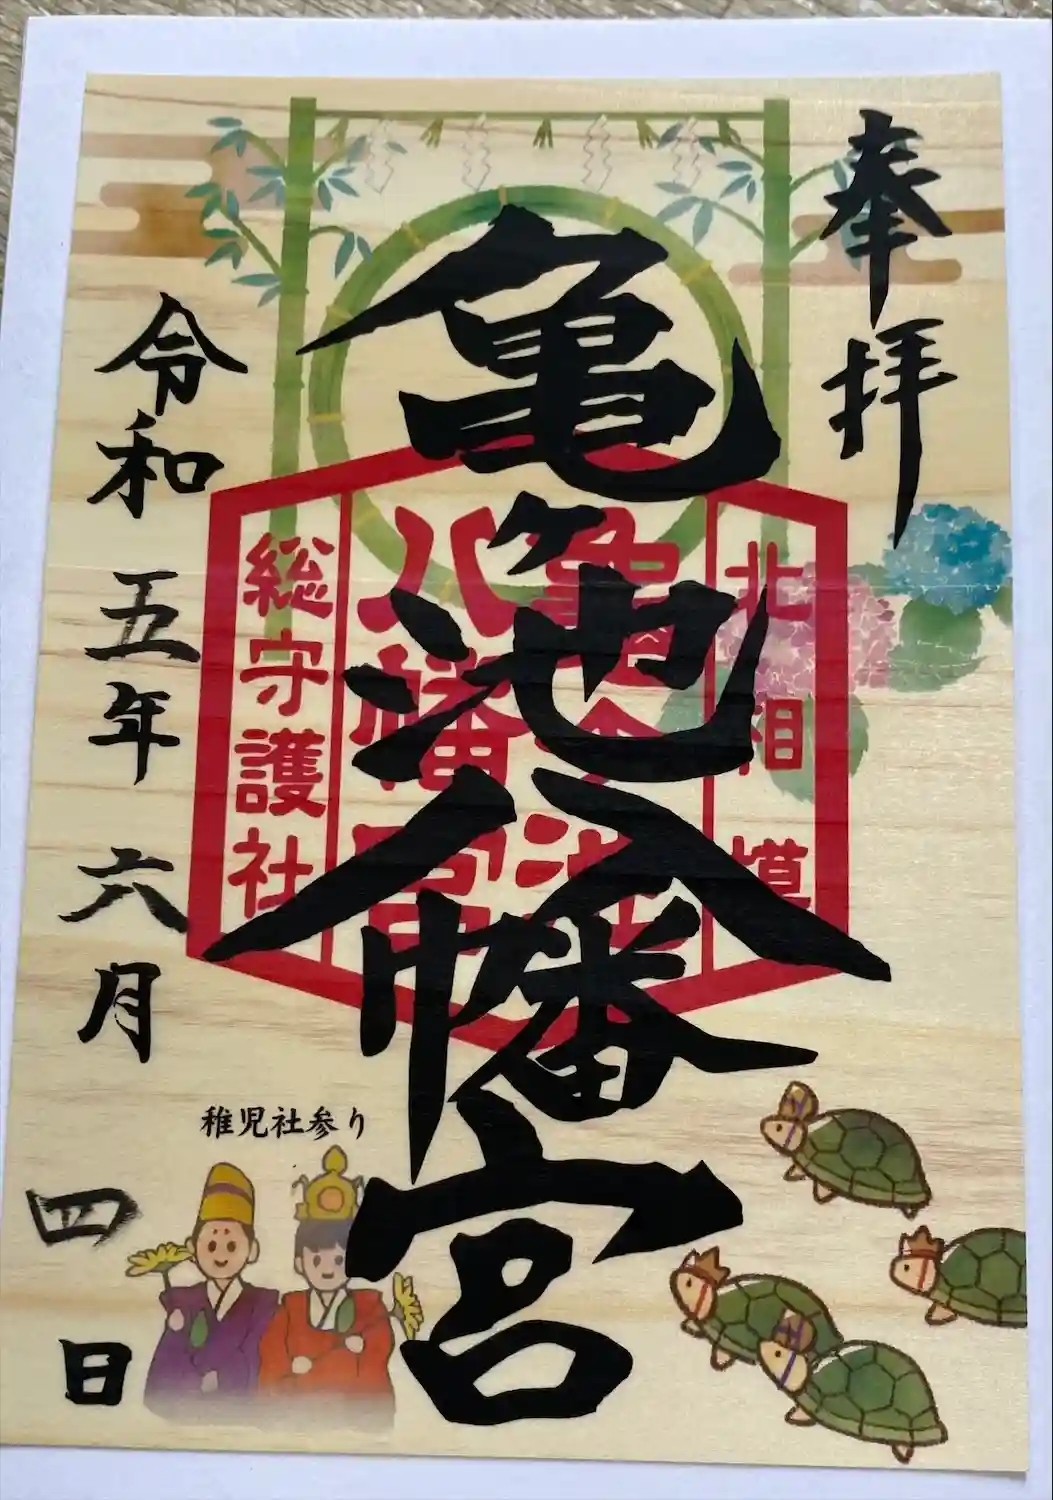 奉拝
北相模
亀ヶ池
八幡宮
総守護社
亀ヶ池八幡宮
令和五年六月四日
稚児社参り